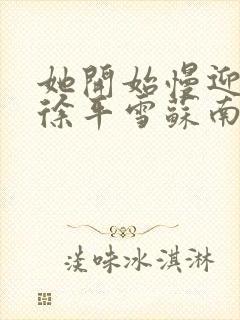 她開始慢迎
徐年雪蘇南
淡味冰淇淋